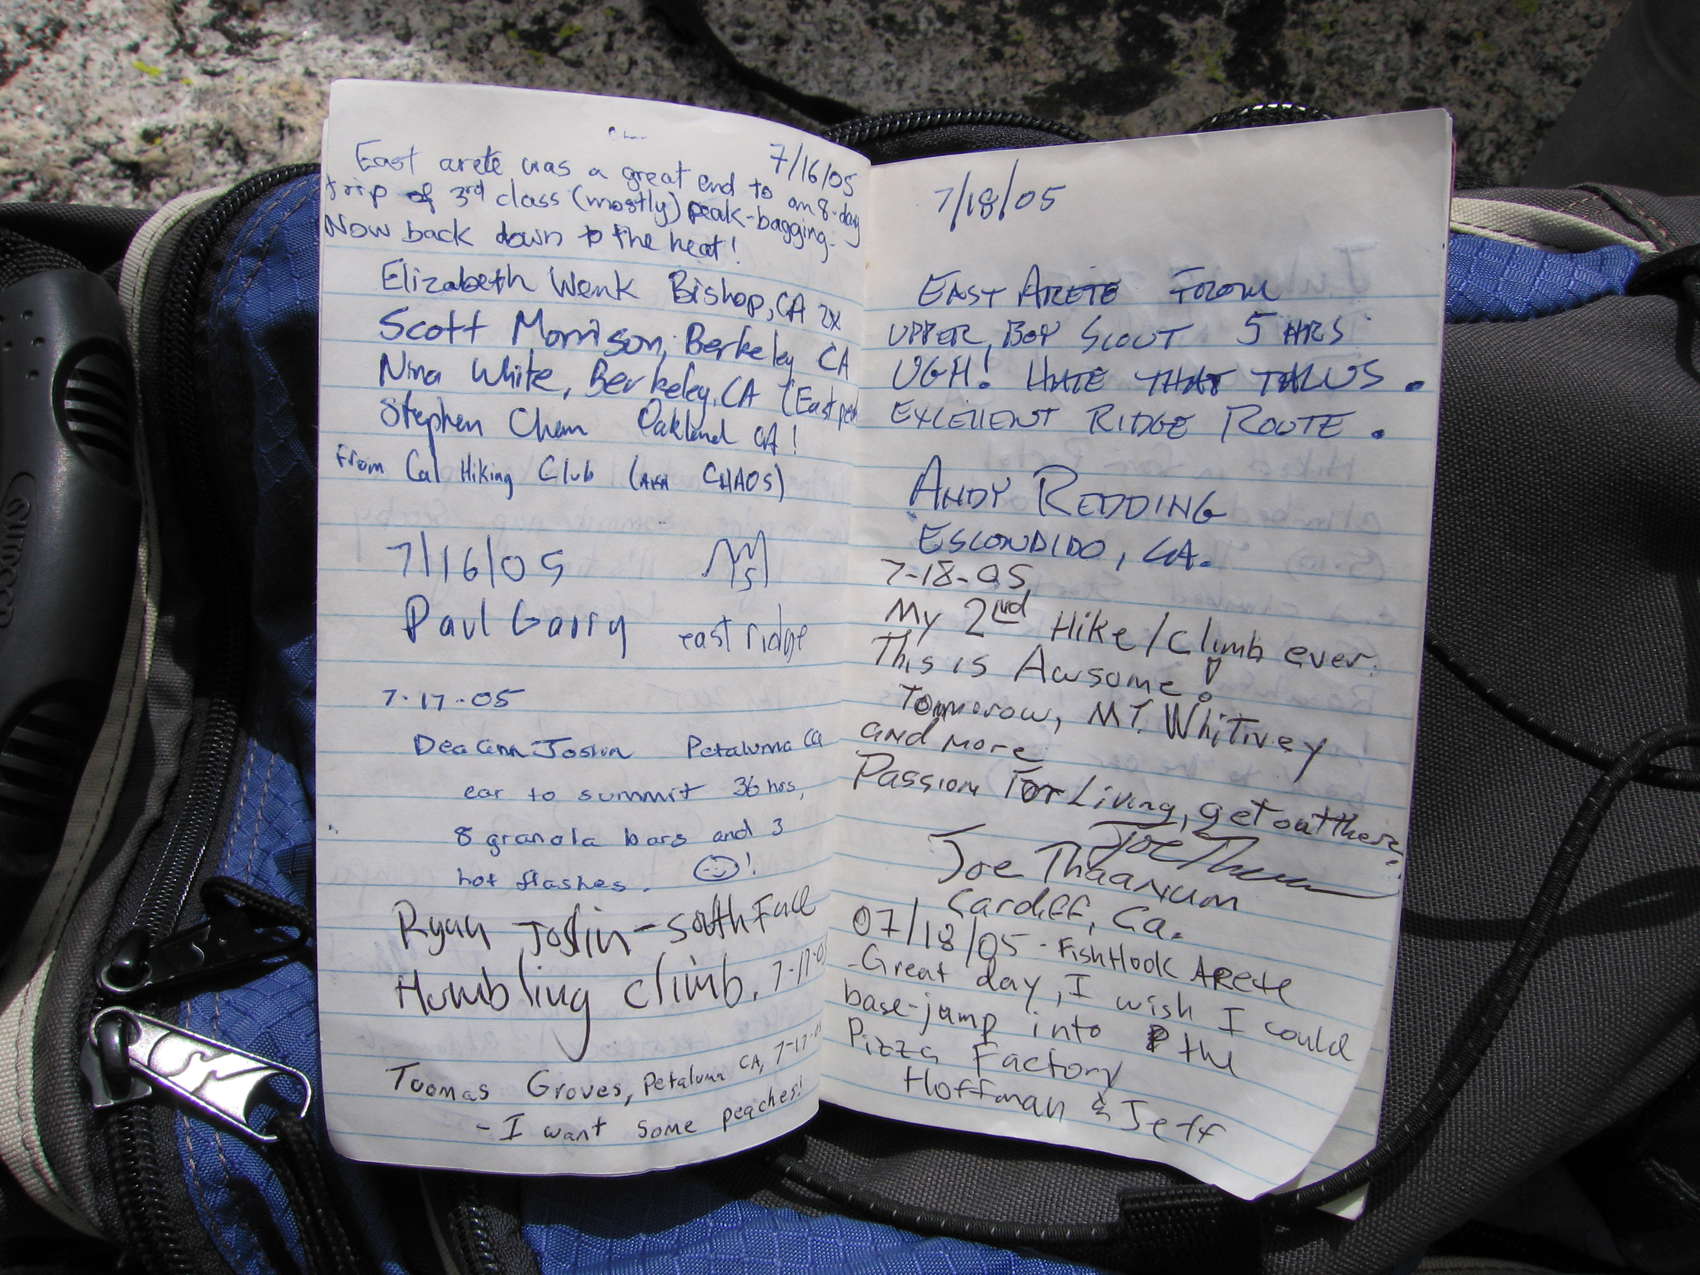 7/16/05
East arete was a great end to an 8-day
trip of 3rd class (mostly) peak-bagging.
Now back down to the heat!
Elizabeth Wenk Bishop, CA 2x
Scott Morrison, Berkeley CA
Nina White, Berkeley, CA (East
Stephen Chan Oakland CA!
from Cal Hiking Club (AKA CHAOS)
7/16/05
Paul Garry east ridge
7-17-05
DeeAnn Joslin Petaluma CA
car to summit 36 hrs,
8 granola bars and 3
hot flashes. !
Ryan Joslin - South Face
Humbling climb. 7-17-0
Toomas Groves, Petaluma CA, 7-17-
- I want some peaches!
7/18/05
EAST ARETE FROM
UPPER BOY SCOUT 5 HRS
UGH! HATE THAT TALUS.
EXCELLENT RIDGE ROUTE.
ANDY REDDING
ESCONDIDO, CA.
7-18-05
My 2nd Hike/Climb ever.
This is Awsome!
Tommorow, MT. Whitney
and more
Passion For Living, get out there!
Joe Thaanum
Cardiff, Ca.
07/18/05 - FishHook Arete
-Great day, I wish I could
base-jump into the
Pizza Factory
Hoffman & Jeff
SUNCOR